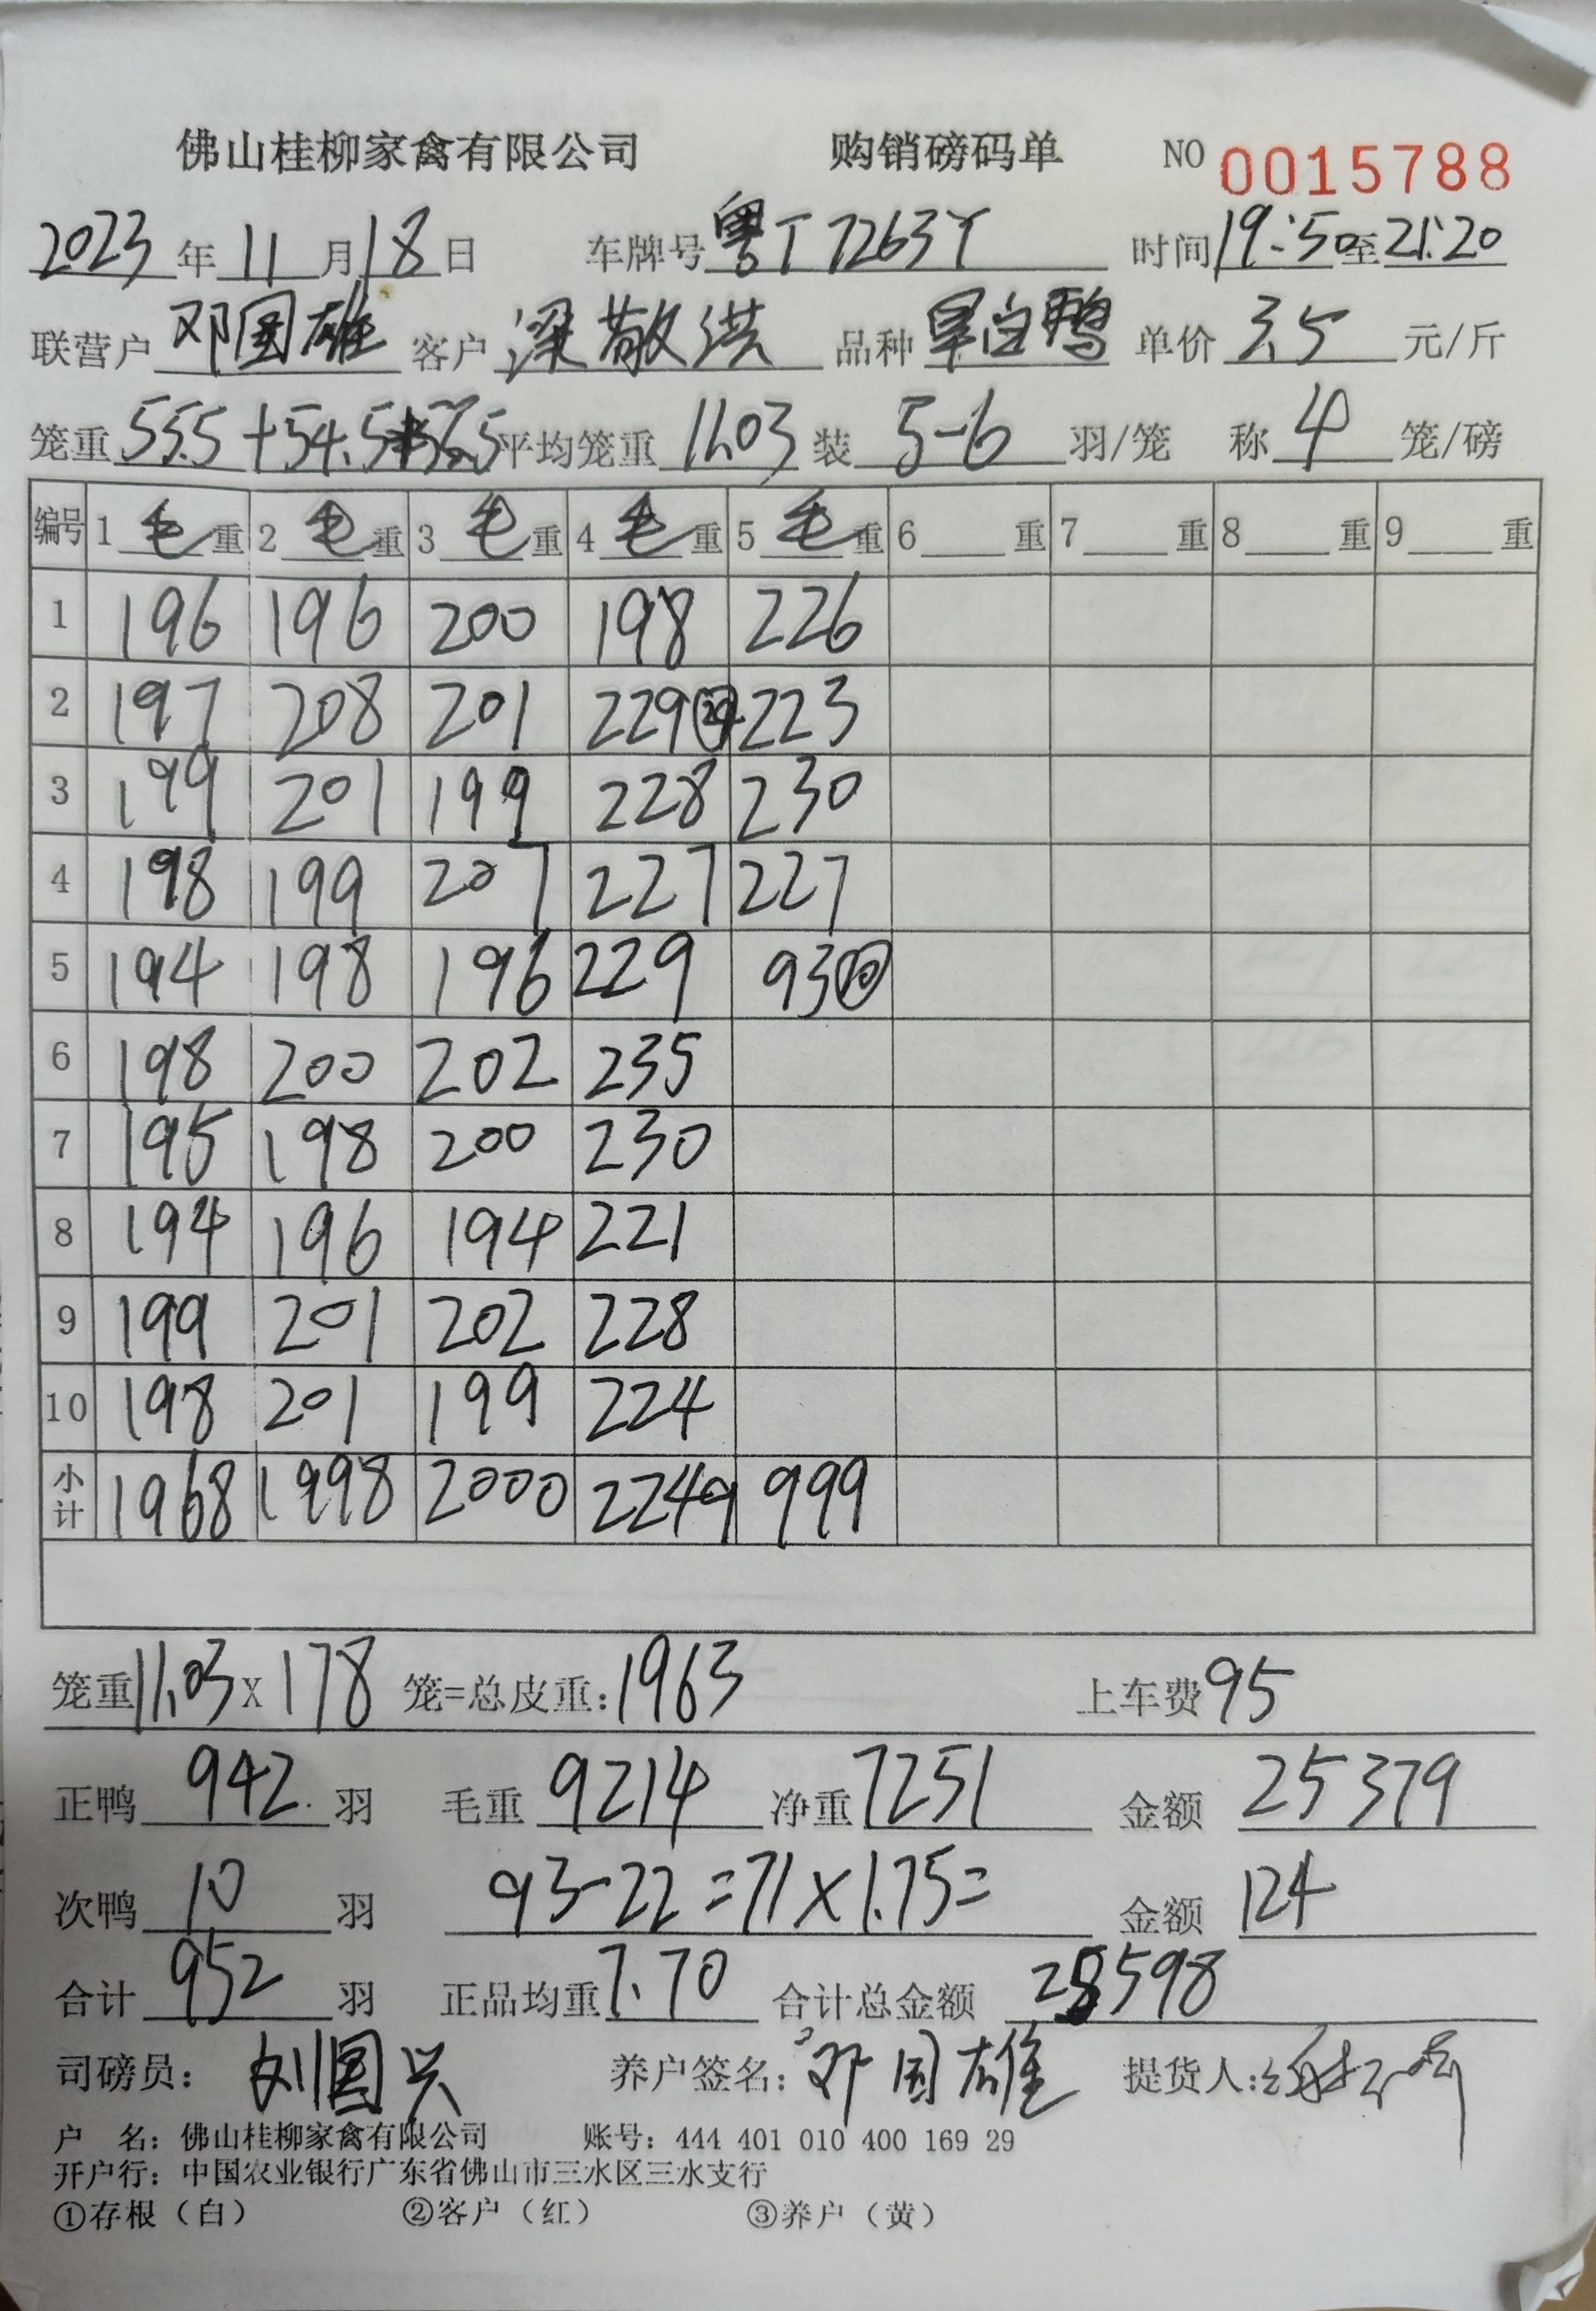 佛山桂柳家禽有限公司 购销磅码单 NO 0015788
2023年11月18日 车牌号粤T7263Y 时间19:50至21:20
联营户邓国雄 客户梁敬洪 品种 单价3.5元/斤
笼重55.5+54.5 平均笼重11.03装5-6羽/笼 称4笼/磅
编号 1毛重 2毛重 3毛重 4毛重 5毛重 6重 7重 8重 9重
1 196 196 200 198 226
2 197 208 201 229 223
3 199 201 199 228 230
4 198 199 207 227 227
5 194 198 196 229 93⑩
6 198 200 202 235
7 195 198 200 230
8 194 196 194 221
9 199 201 202 228
10 198 201 199 224
小计 1968 1998 2000 2249 999
笼重11.03X178笼=总皮重:1963 上车费95
正鸭942羽 毛重9214 净重7251 金额25379
次鸭10羽 93-22=71×1.75= 金额124
合计952羽 正品均重7.70 合计总金额25598
司磅员:刘国兴 养户签名:邓国雄 提货人:
户 名:佛山桂柳家禽有限公司 账号:444 401 010 400 169 29
开户行:中国农业银行广东省佛山市三水区三水支行
①存根(白) ②客户(红) ③养户(黄)